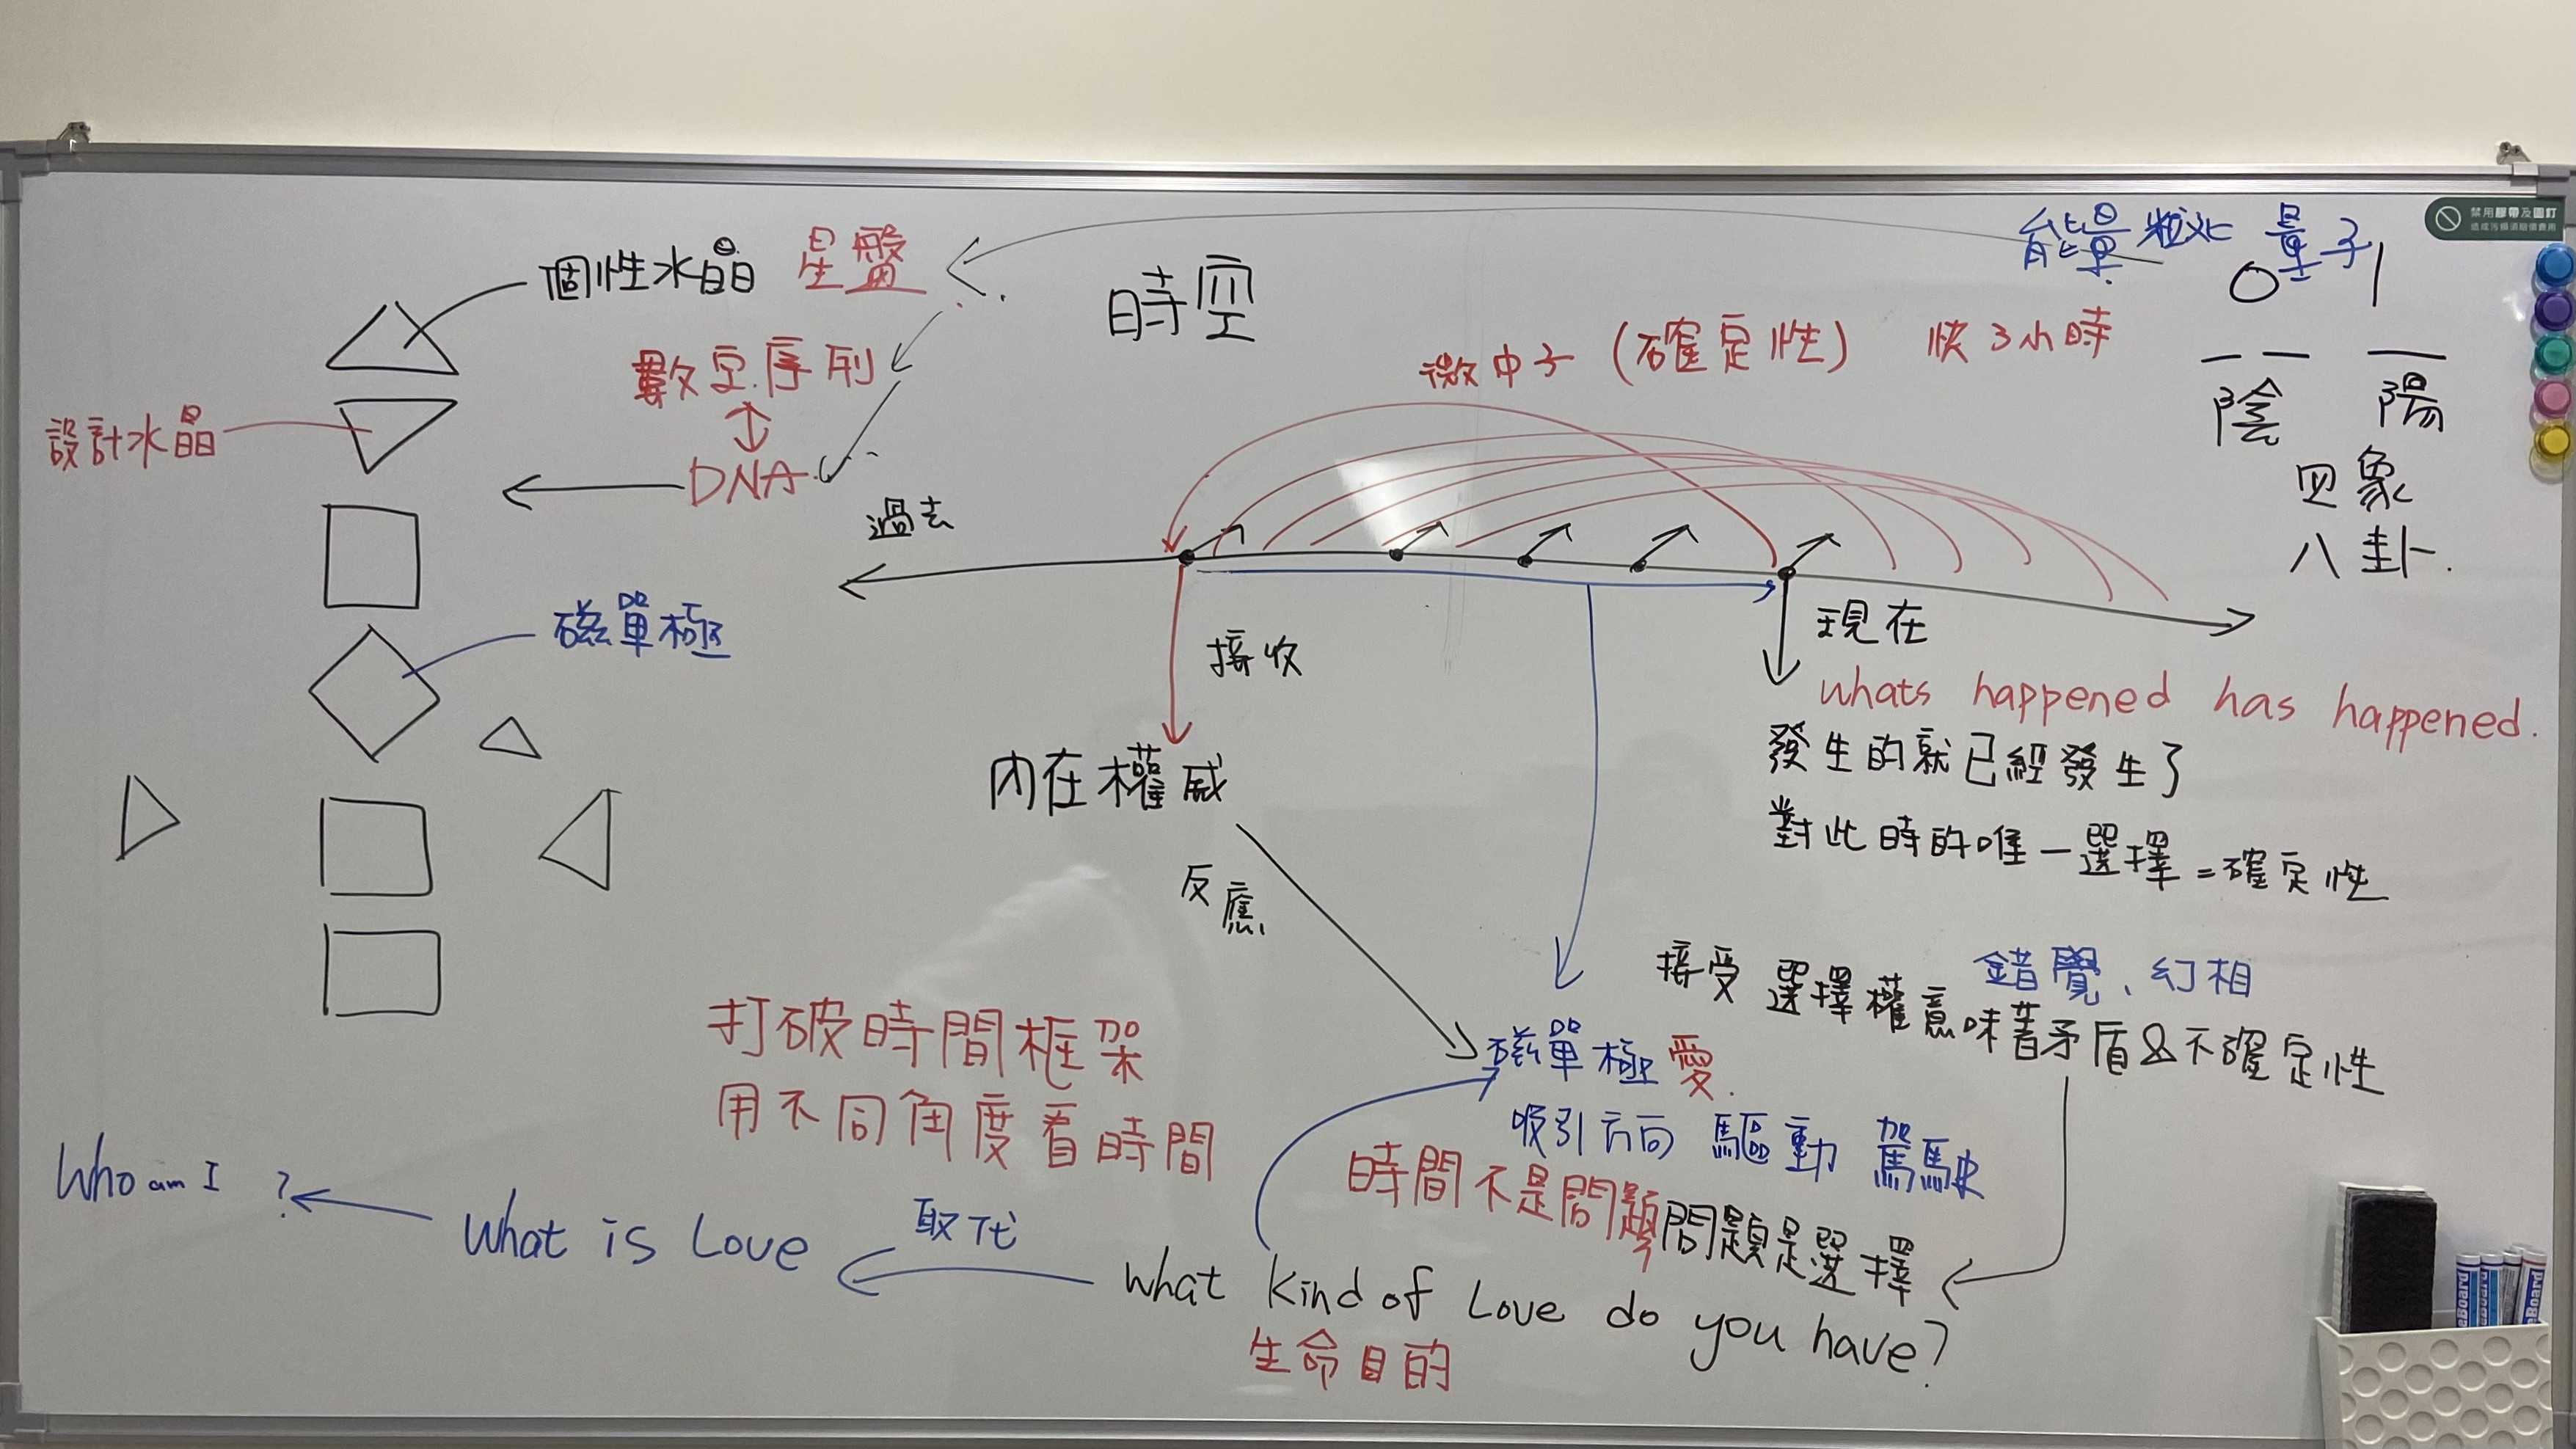 禁用膠帶及圖釘
造成污損須賠償費用
能量粒化 量子
0 1
陰 陽
四象
八卦.
個性水晶 星盤
數字序列
DNA
設計水晶
磁單極
時空
微中子(確定性) 快3小時
過去
現在
接收
內在權威
反應
whats happened has happened.
發生的就已經發生了
對此時的唯一選擇=確定性
錯覺、幻相
接受 選擇權意味著矛盾&不確定性
磁單極愛.
吸引方向 驅動 駕駛
時間不是問題問題是選擇
打破時間框架
用不同角度看時間
Who am I ?
What is Love
取代
What kind of Love do you have?
生命目的